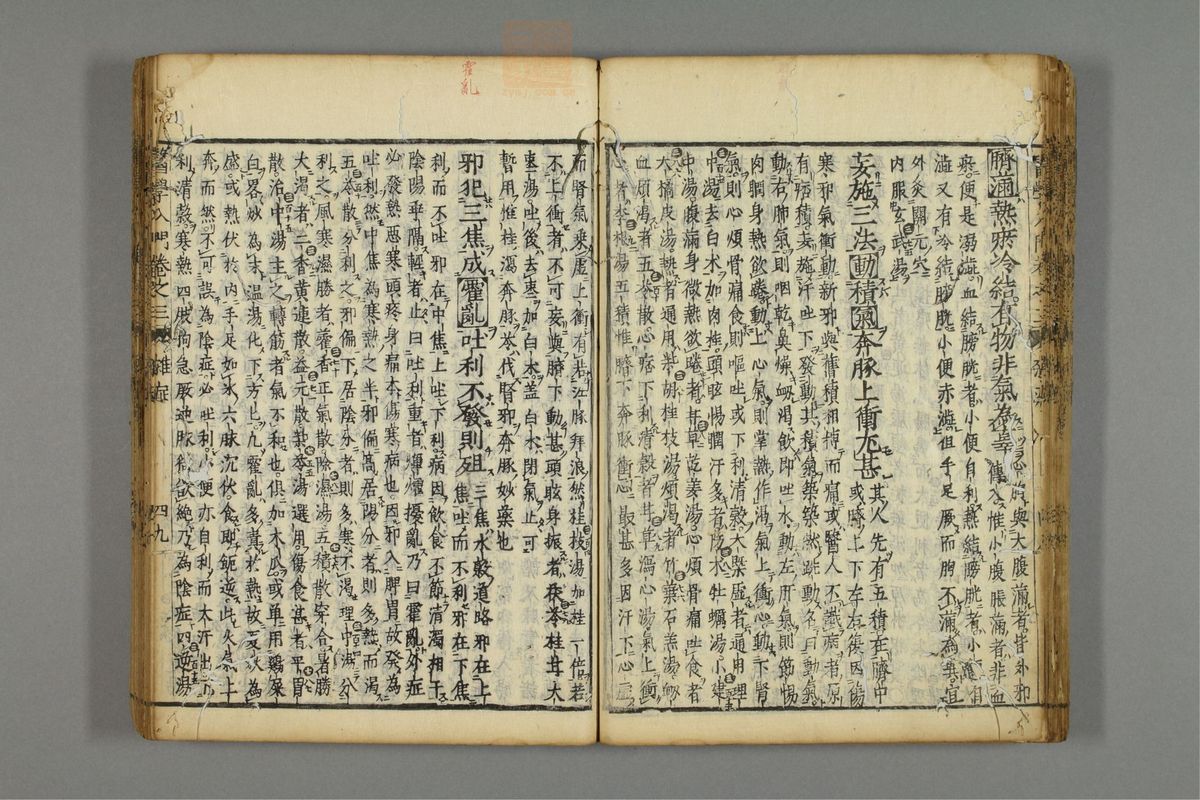 臍滿熱瘀冷結有物非氣為
與大腹滿者皆外邪
傳入惟小腹脹滿者非血
瘀便是溺澁血結膀胱者小便自利熱結膀胱者小便
澁又有冷結膀胱小便赤澁但手足厥而
不滿為異宜
外灸關元穴
內服玄武湯
妄施三法動積氣奔豚上衝尤甚
其人先有五積在臍中
或臍上下左右復因傷
寒邪氣衝動新邪與舊積相搏而痛或醫人不識病者原
有痞積妄施汗吐下發動其積氣築築然跳動名曰動氣
動右肺氣則咽乾鼻燥衄渴飲即吐水動左肝氣則筋惕
肉瞤身熱欲踡動上心氣則掌熱作渴氣上衝心動下腎
氣則心煩骨痛食則嘔吐或下利清穀大槩虛者通用理
中湯去白术加肉桂頭眩惕瞤汗多者防术牡蠣湯小建
中湯腹滿身微熱欲踡者甘草乾姜湯心煩骨痛吐食者
大橘皮湯熱者通用柴胡桂枝湯煩渴者竹葉石羔湯衄
血煩渴者五苓散心痞下利清穀者甘草瀉心湯氣上衝
李根湯五積惟臍下奔豚衝心最甚多因汗下心虛
而腎氣乘虛上衝有若江豚拜浪然桂枝湯加桂一倍若
不上衝者不可妄與臍下動甚頭眩身振者茯苓桂甘大
棗湯吐後去棗加白术盖白术閉氣止可
暫用惟桂瀉奔豚苓伐腎邪奔豚妙藥也
邪犯三焦成霍亂吐利不發則殂
三焦水穀道路邪在上
焦吐而不利邪在下焦
利而不吐邪在中焦上吐下利病因飲食不節清濁相干
陰陽乖隔輕者止曰吐利重者揮擾亂乃曰霍亂外症
必發熱惡寒頭疼身痛本傷寒病也因邪入脾胃故發為
吐利然中焦為寒熱之半邪偏高居陽分者則多熱而渴
五苓散分利之邪偏下居陰分者則多寒不渴理中湯分
利之風寒濕勝者藿香正氣散除濕湯五積散穿合暑勝
大渴者二香黃連散益元散桂苓湯選用傷食甚者平胃
散治中湯主之轉筋者氣不和也俱加木瓜或單用鷄屎
白畧炒為末温湯化下方寸匕霍亂多責於熱故夏秋為
盛或熱伏於内手足如冰六脉沉伏食即餀逆此火炎上
奔而然不可誤為陰症必吐利小便亦自利而大汗出下
利清穀寒熱四肢拘急厥逆脉微欲絶乃為陰症四逆湯
醫學入門卷之三
雜症
四九
霍亂